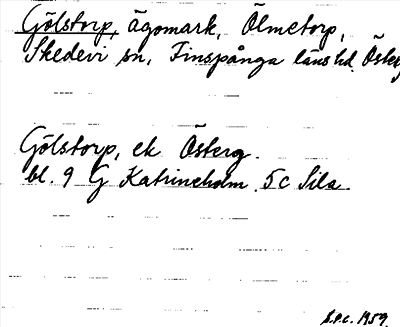 Gölstorp, ägomark, Ölmetorp,
Skedevi sn, Finspånga läns hd. Österg
Gölstorp, ek Österg.
bl. 9 G Katrineholm 5c Sila
S.P.C. 1959.